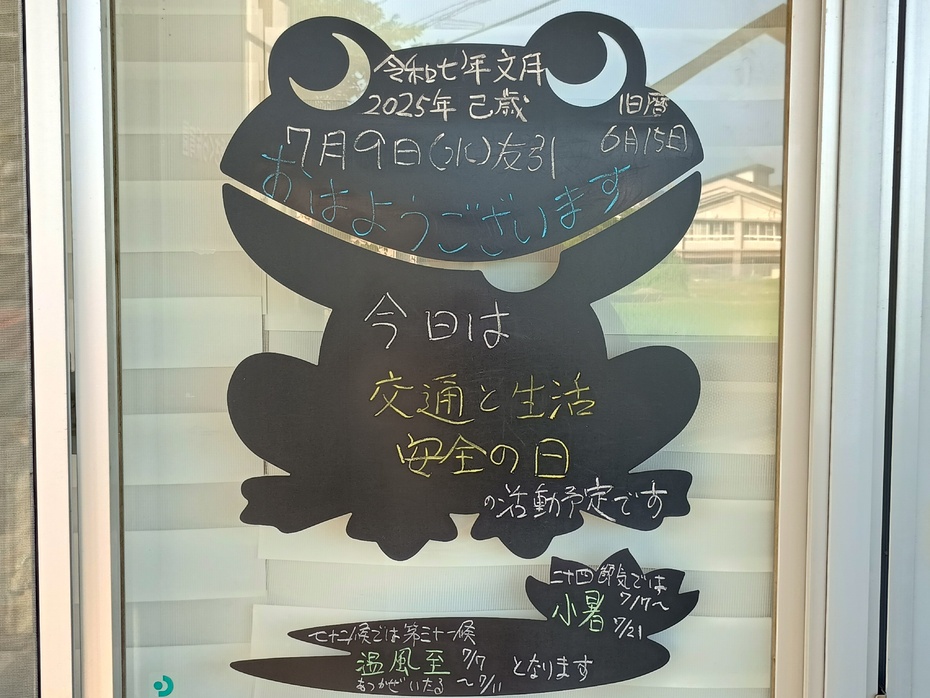 令和七年文月
2025年 己歳
旧暦
6月15日
7月9日(水)友引
おはようございます
今日は
交通と生活
安全の日
の活動予定です
二十四節気では
小暑 7/7〜
7/21
七十二候では第三十一候
温風至 7/7
あつかぜいたる 〜7/11
となります